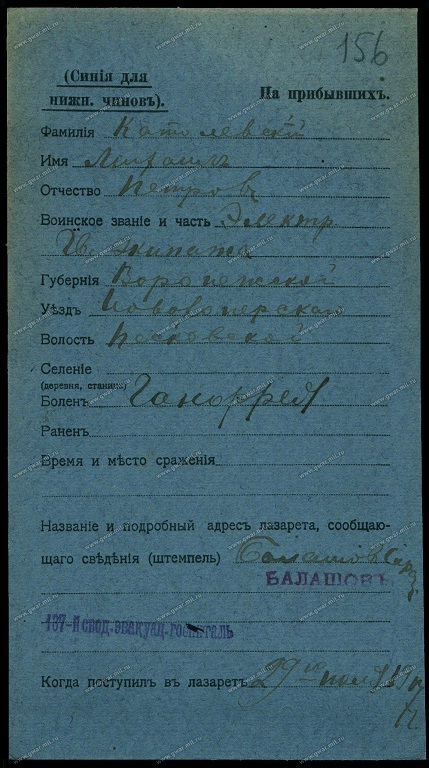 156
(Синія для
нижн. чиновъ).
На прибывшихъ.
Фамилія Католевскій
Имя Михаилъ
Отчество Петровъ
Воинское званіе и часть Электр
Губернія Воронежской
Уѣздъ Новохоперскаго
Волость Песковской
Селеніе
(деревня, станица)
Боленъ Гоноррея
Раненъ
Время и мѣсто сраженія
Названіе и подробный адресъ лазарета, сообщаю-
щаго свѣдѣнія (штемпель) Балашовъ
БАЛАШОВЪ
167-й свод. эвакуац. госпиталь
Когда поступилъ въ лазаретъ 29 го